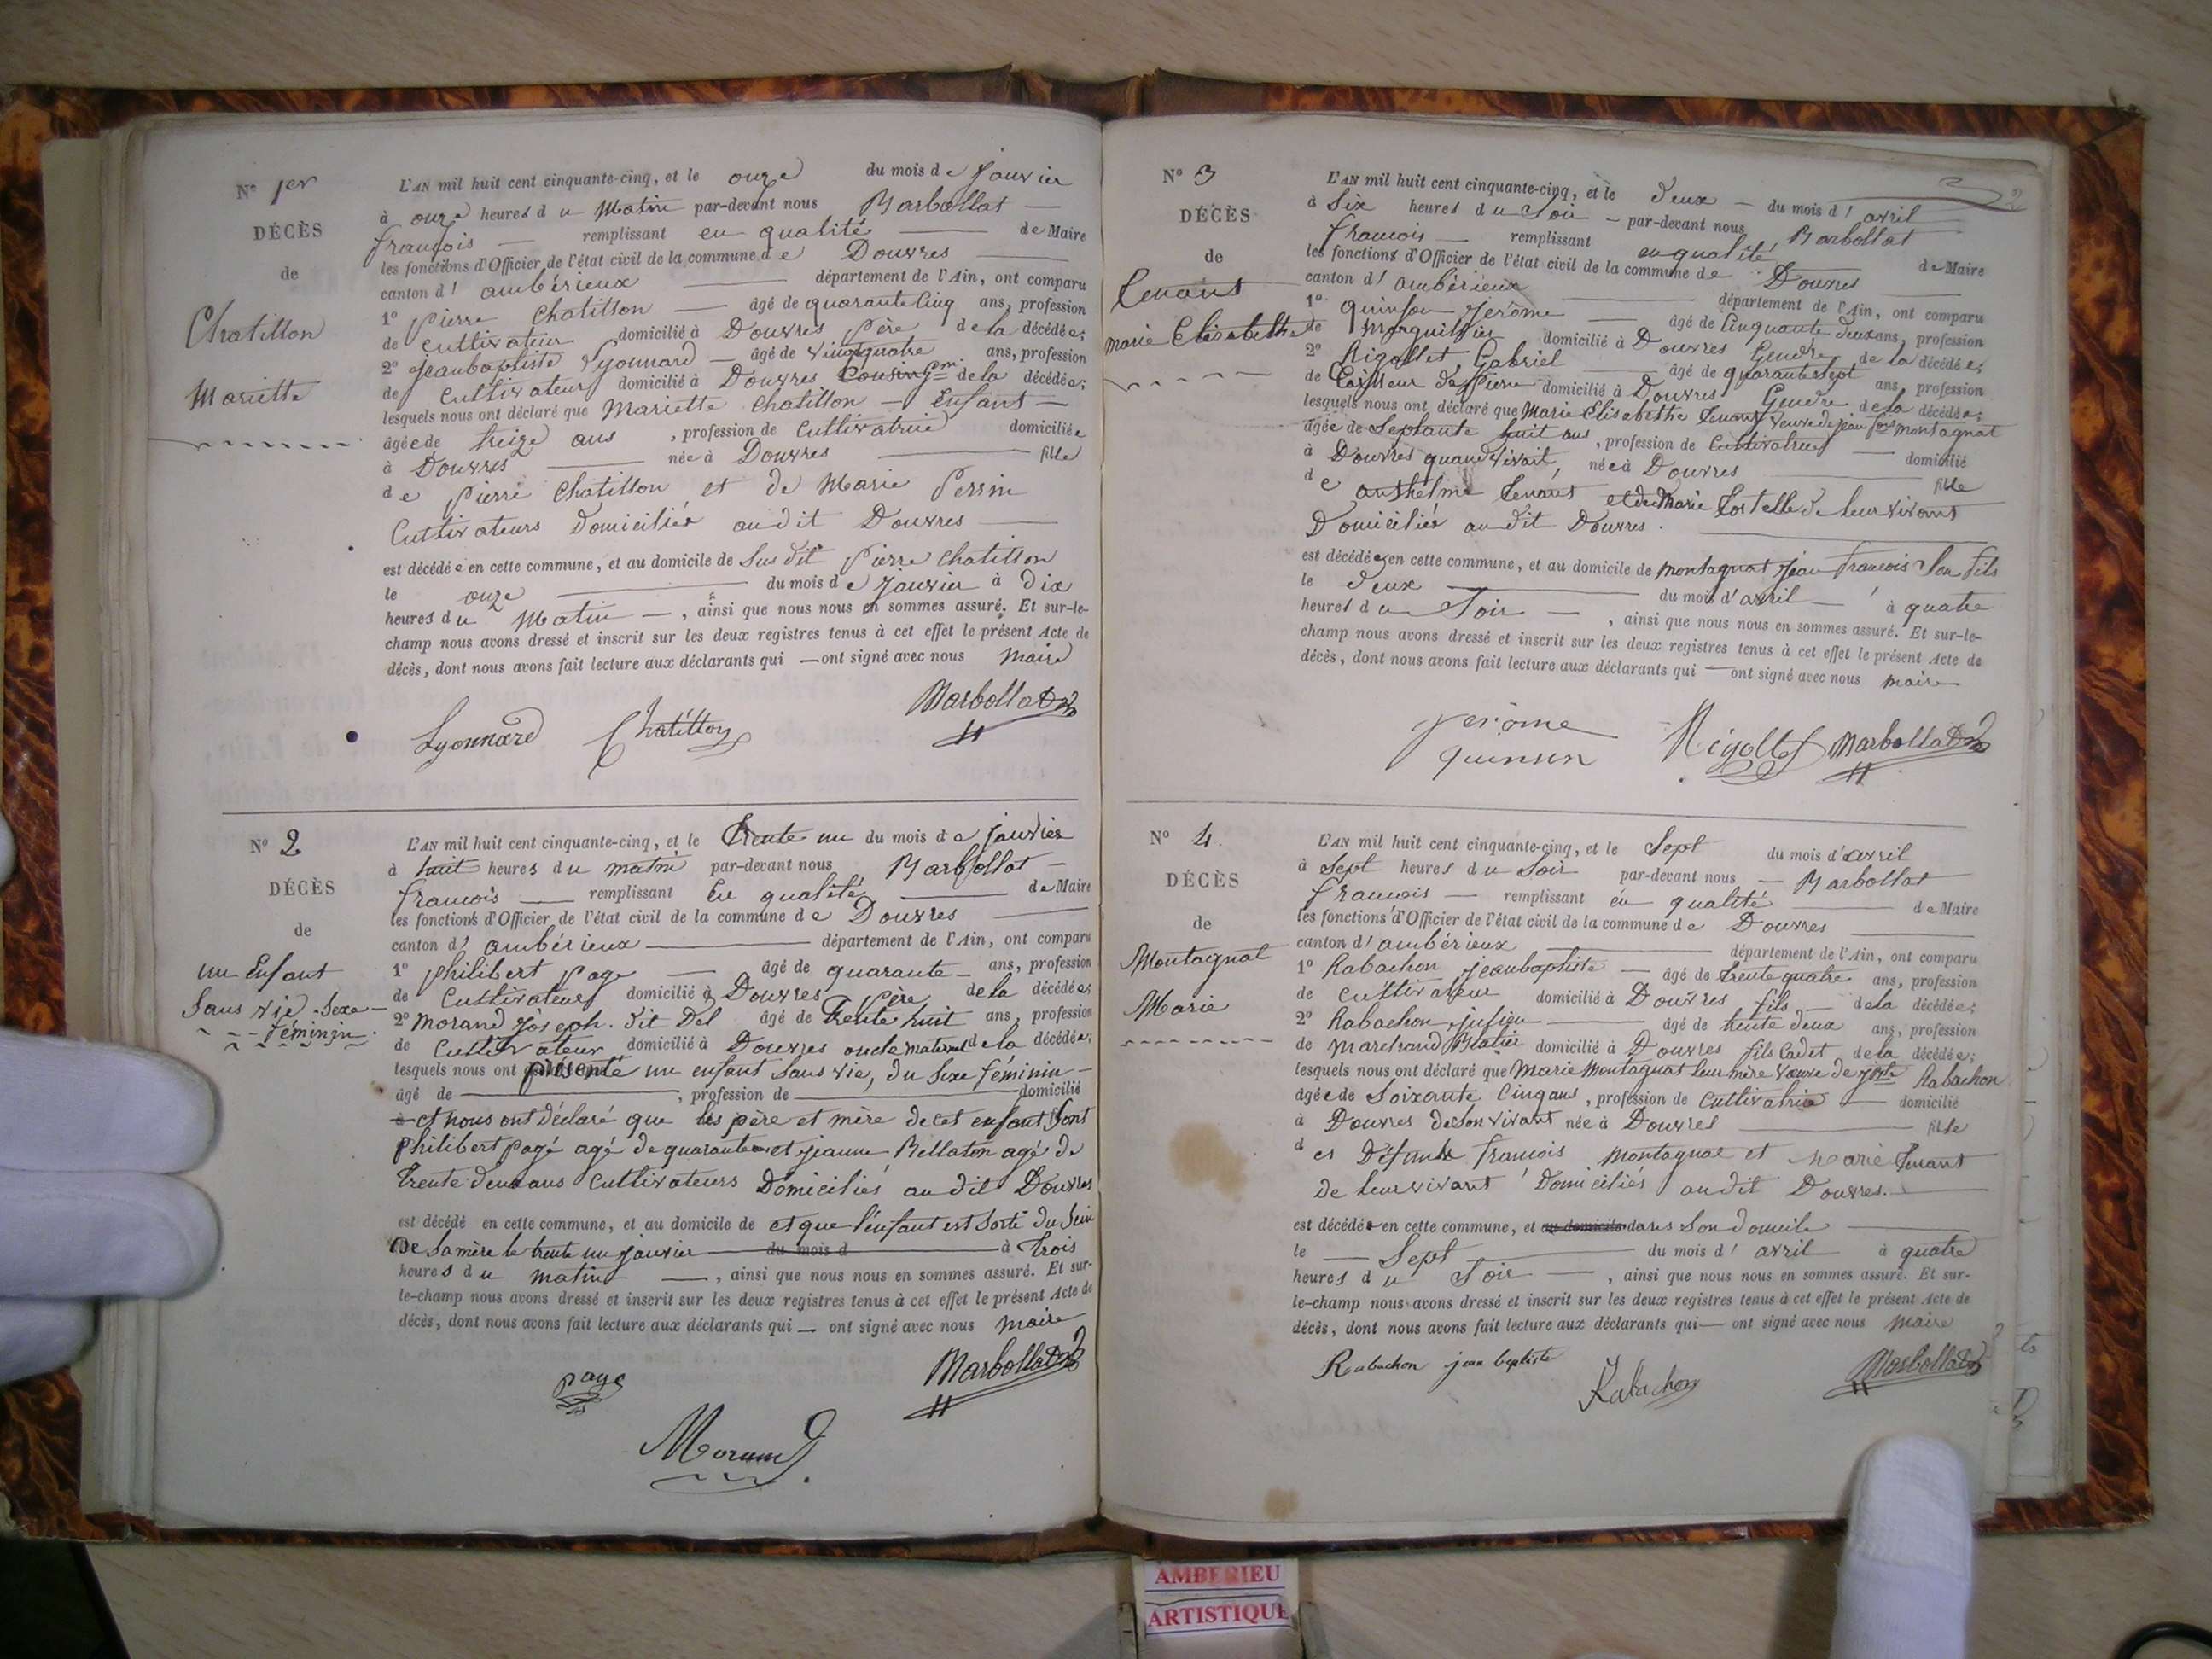 N° 1er
DÉCÈS
de
Chatillon
Mariette
L'AN mil huit cent cinquante-cinq, et le onze du mois de Janvier
à onze heures du Matin par-devant nous Marbollat
françois remplissant en qualité de Maire
les fonctions d'Officier de l'état civil de la commune de Douvres
canton d'ambérieux département de l'Ain, ont comparu
1° pierre Chatillon âgé de quarante Cinq ans, profession
de Cultivateur domicilié à Douvres père de la décédée;
2° jeanbaptiste Lyonnard âgé de vingtquatre ans, profession
de Cultivateur domicilié à Douvres Cousin gm de la décédée;
lesquels nous ont déclaré que Mariette Chatillon Enfant
âgée de treize ans, profession de Cultivatrice domiciliée
à Douvres née à Douvres fille
de pierre Chatillon et de Marie Perrin
Cultivateurs Domiciliés audit Douvres
est décédée en cette commune, et au domicile de Sus dit Pierre Chatillon
le onze du mois de Janvier à Dix
heures du Matin, ainsi que nous nous en sommes assuré. Et sur-le-
champ nous avons dressé et inscrit sur les deux registres tenus à cet effet le présent Acte de
décès, dont nous avons fait lecture aux déclarants qui ont signé avec nous Maire
Lyonnard Chatillon Marbollat
N° 2
DÉCÈS
de
un Enfant
Sans vie. Sexe
féminin.
L'AN mil huit cent cinquante-cinq, et le Trente un du mois de janvier
à huit heures du matin par-devant nous Marbollat
françois remplissant En qualité de Maire
les fonctions d'Officier de l'état civil de la commune de Douvres
canton d'ambérieux département de l'Ain, ont comparu
1° philibert page âgé de quarante ans, profession
de Cultivateur domicilié à Douvres père de la décédée;
2° Morand Joseph. dit Del âgé de Trente huit ans, profession
de Cultivateur domicilié à Douvres oncle maternel de la décédée;
lesquels nous ont présenté un enfant Sans vie, du Sexe féminin
âgé de , profession de domicilié
et nous ont déclaré que les père et mère de cet enfant Sont
philibert pagé agé de quarante et jeanne Bellaton agé de
Trente deux ans Cultivateurs Domiciliés audit Douvres
est décédé en cette commune, et au domicile de et que l'enfant est Sorti du Sein
De Sa mère le trente un janvier du mois d à Trois
heures du matin, ainsi que nous nous en sommes assuré. Et sur-
le-champ nous avons dressé et inscrit sur les deux registres tenus à cet effet le présent Acte de
décès, dont nous avons fait lecture aux déclarants qui ont signé avec nous Maire
page Marbollat
Morand
2
N° 3
DÉCÈS
de
Tenant
marie Elisabethe
L'AN mil huit cent cinquante-cinq, et le deux du mois d'avril
à Six heures du Soir par-devant nous Marbollat
francois remplissant en qualité de Maire
les fonctions d'Officier de l'état civil de la commune de Douvres
canton d'ambérieux département de l'Ain, ont comparu
1° quinson Jérôme âgé de Cinquante deux ans, profession
de Marguillier domicilié à Douvres Gendre de la décédée;
2° Rigollet Gabriel âgé de quarante Sept ans, profession
de Tailleur de pierre domicilié à Douvres Gendre de la décédée;
lesquels nous ont déclaré que Marie Elisabethe Tenant Veuve de jean fois Montagnat
âgée de Septante huit ans, profession de Cultivatrice domicilié
à Douvres quand vivait, née à Douvres fille
de anthelme Tenant et de Marie de leur vivant
Domiciliés audit Douvres.
est décédée en cette commune, et au domicile de montagnat jean francois Son fils
le deux du mois d'avril à quatre
heures du Soir, ainsi que nous nous en sommes assuré. Et sur-le-
champ nous avons dressé et inscrit sur les deux registres tenus à cet effet le présent Acte de
décès, dont nous avons fait lecture aux déclarants qui ont signé avec nous maire
jerome
quinson Rigollet Marbollat
N° 4.
DÉCÈS
de
Montagnat
Marie
L'AN mil huit cent cinquante-cinq, et le Sept du mois d'avril
à Sept heures du Soir par-devant nous Marbollat
francois remplissant en qualité de Maire
les fonctions d'Officier de l'état civil de la commune de Douvres
canton d'ambérieux département de l'Ain, ont comparu
1° Rabachon jeanbaptiste âgé de trente quatre ans, profession
de Cultivateur domicilié à Douvres fils de la décédée;
2° Rabachon âgé de trente deux ans, profession
de Marchand domicilié à Douvres fils Cadet de la décédée;
lesquels nous ont déclaré que Marie Montagnat leur mère Veuve de Rabachon
âgée de Soixante Cinq ans, profession de Cultivatrice domicilié
à Douvres de Son vivant née à Douvres fille
des Défunts francois Montagnat et Marie Tenant
de leur vivant Domiciliés audit Douvres.
est décédée en cette commune, et au domicile dans Son domicile
le Sept du mois d'avril à quatre
heures du Soir, ainsi que nous nous en sommes assuré. Et sur-
le-champ nous avons dressé et inscrit sur les deux registres tenus à cet effet le présent Acte de
décès, dont nous avons fait lecture aux déclarants qui ont signé avec nous Maire
Rabachon jean baptiste Rabachon Marbollat
AMBERIEU
ARTISTIQUE